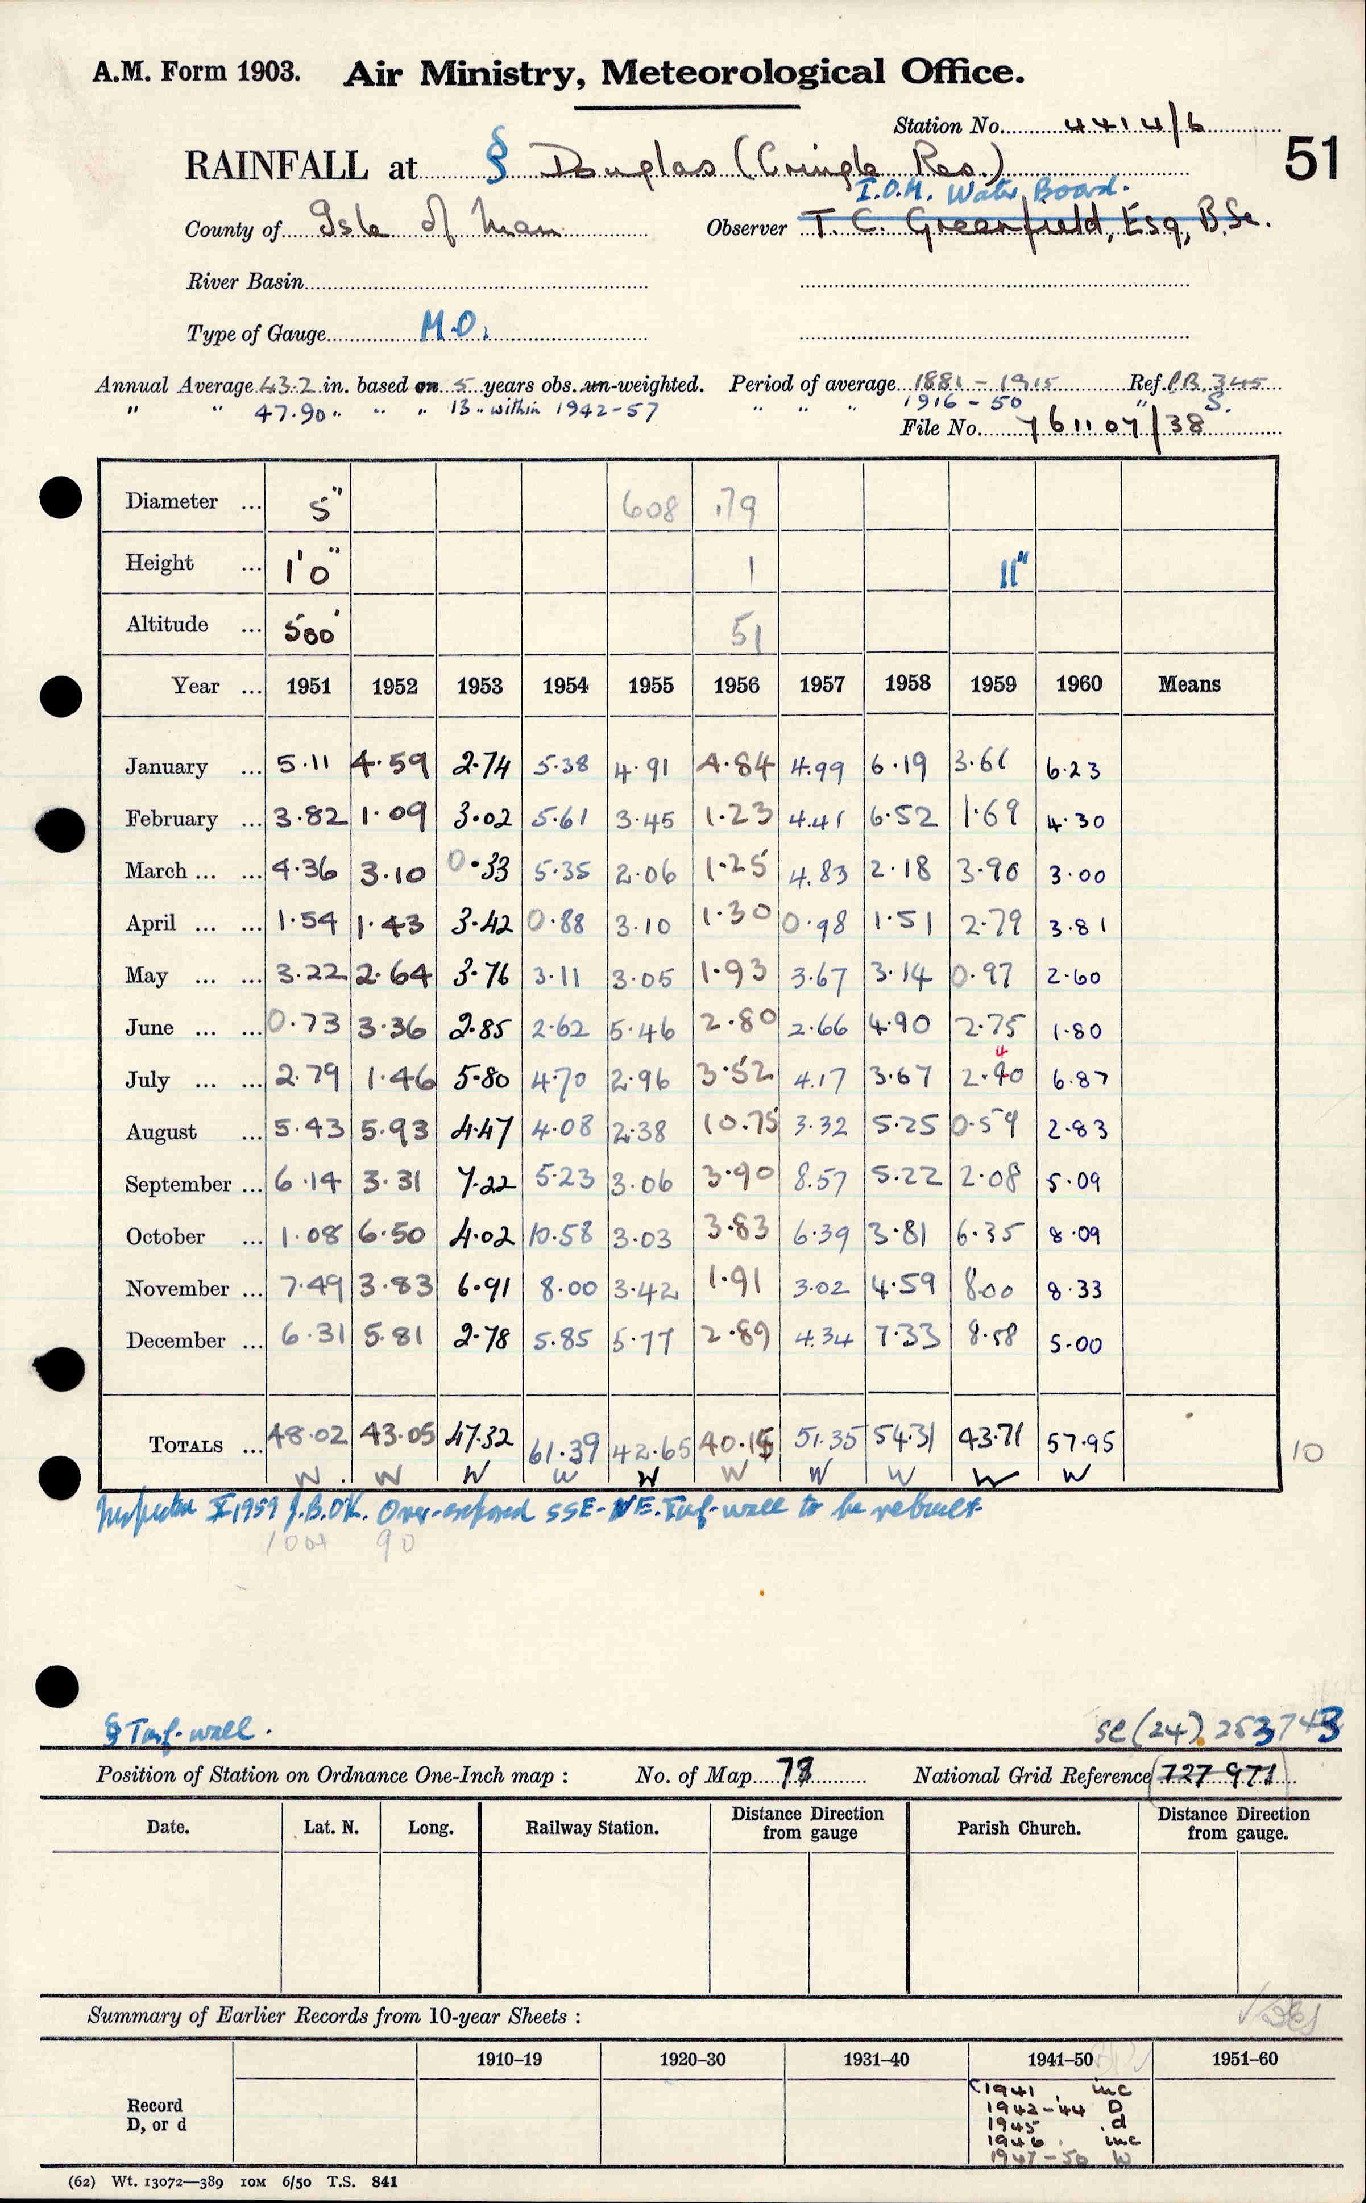 A.M. Form 1903. Air Ministry, Meteorological Office.
Station No. 4414/6
51
RAINFALL at § Douglas (Cringle Res.)
I.O.M. Water Board.
County of Isle of Man Observer T. C. Greenfield, Esq, B.Sc.
River Basin
Type of Gauge M.O.
Annual Average 43.2 in. based on 5 years obs. un-weighted. Period of average 1881 - 1915 Ref. P.B. 345
" " 47.90 " " " 13 " within 1942-57 " " " 1916 - 50 " S.
File No. 761107/38
Diameter ... 5" 608 .79
Height ... 1'0" 1 11"
Altitude ... 500' 51
Year ... 1951 1952 1953 1954 1955 1956 1957 1958 1959 1960 Means
January ... 5.11 4.59 2.74 5.38 4.91 4.84 4.99 6.19 3.61 6.23
February ... 3.82 1.09 3.02 5.61 3.45 1.23 4.41 6.52 1.69 4.30
March ... ... 4.36 3.10 0.33 5.35 2.06 1.25 4.83 2.18 3.90 3.00
April ... ... 1.54 1.43 3.42 0.88 3.10 1.30 0.98 1.51 2.79 3.81
May ... ... 3.22 2.64 3.76 3.11 3.05 1.93 3.67 3.14 0.97 2.60
June ... ... 0.73 3.36 2.85 2.62 5.46 2.80 2.66 4.90 2.75 1.80
4
July ... ... 2.79 1.46 5.80 4.70 2.96 3.52 4.17 3.67 2.40 6.87
August ... 5.43 5.93 4.47 4.08 2.38 10.75 3.32 5.25 0.59 2.83
September ... 6.14 3.31 7.22 5.23 3.06 3.90 8.57 5.22 2.08 5.09
October ... 1.08 6.50 4.02 10.58 3.03 3.83 6.39 3.81 6.35 8.09
November ... 7.49 3.83 6.91 8.00 3.42 1.91 3.02 4.59 8.00 8.33
December ... 6.31 5.81 2.78 5.85 5.77 2.89 4.34 7.33 8.58 5.00
TOTALS ... 48.02 43.05 47.32 61.39 42.65 40.15 51.35 54.31 43.71 57.95 10
W W W W W W W W W W
Inspected X 1959 J.B.OK. Over-exposed SSE-NE. Turf-wall to be rebuilt
90
§ Turf-wall.
SC (24) 253743
Position of Station on Ordnance One-Inch map : No. of Map 73 National Grid Reference (727 971)
Date. Lat. N. Long. Railway Station. Distance Direction from gauge Parish Church. Distance Direction from gauge.
Summary of Earlier Records from 10-year Sheets :
1910–19 1920–30 1931–40 1941–50 1951–60
Record
D, or d
1941 inc
1942-44 D
1945 d
1946 inc
1947-50 W
(62) Wt. 13072—389 10M 6/50 T.S. 841